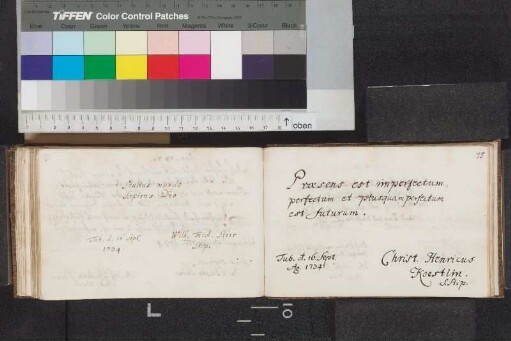 TIFFEN Color Control Patches
Blue Cyan Green Yellow Red Magenta White 3/Color Black
oben
Stultus mundo
sapiens Deo
Tub. d. 16 Sept.
1734
Wilh. Frid.
Stip.
75
Præsens est imperfectum,
perfectum et plusquamperfectum
est futurum.
Tub. d. 16. Sept.
Ao 1734
Christ. Henricus
Koestlin.
S. Stip.